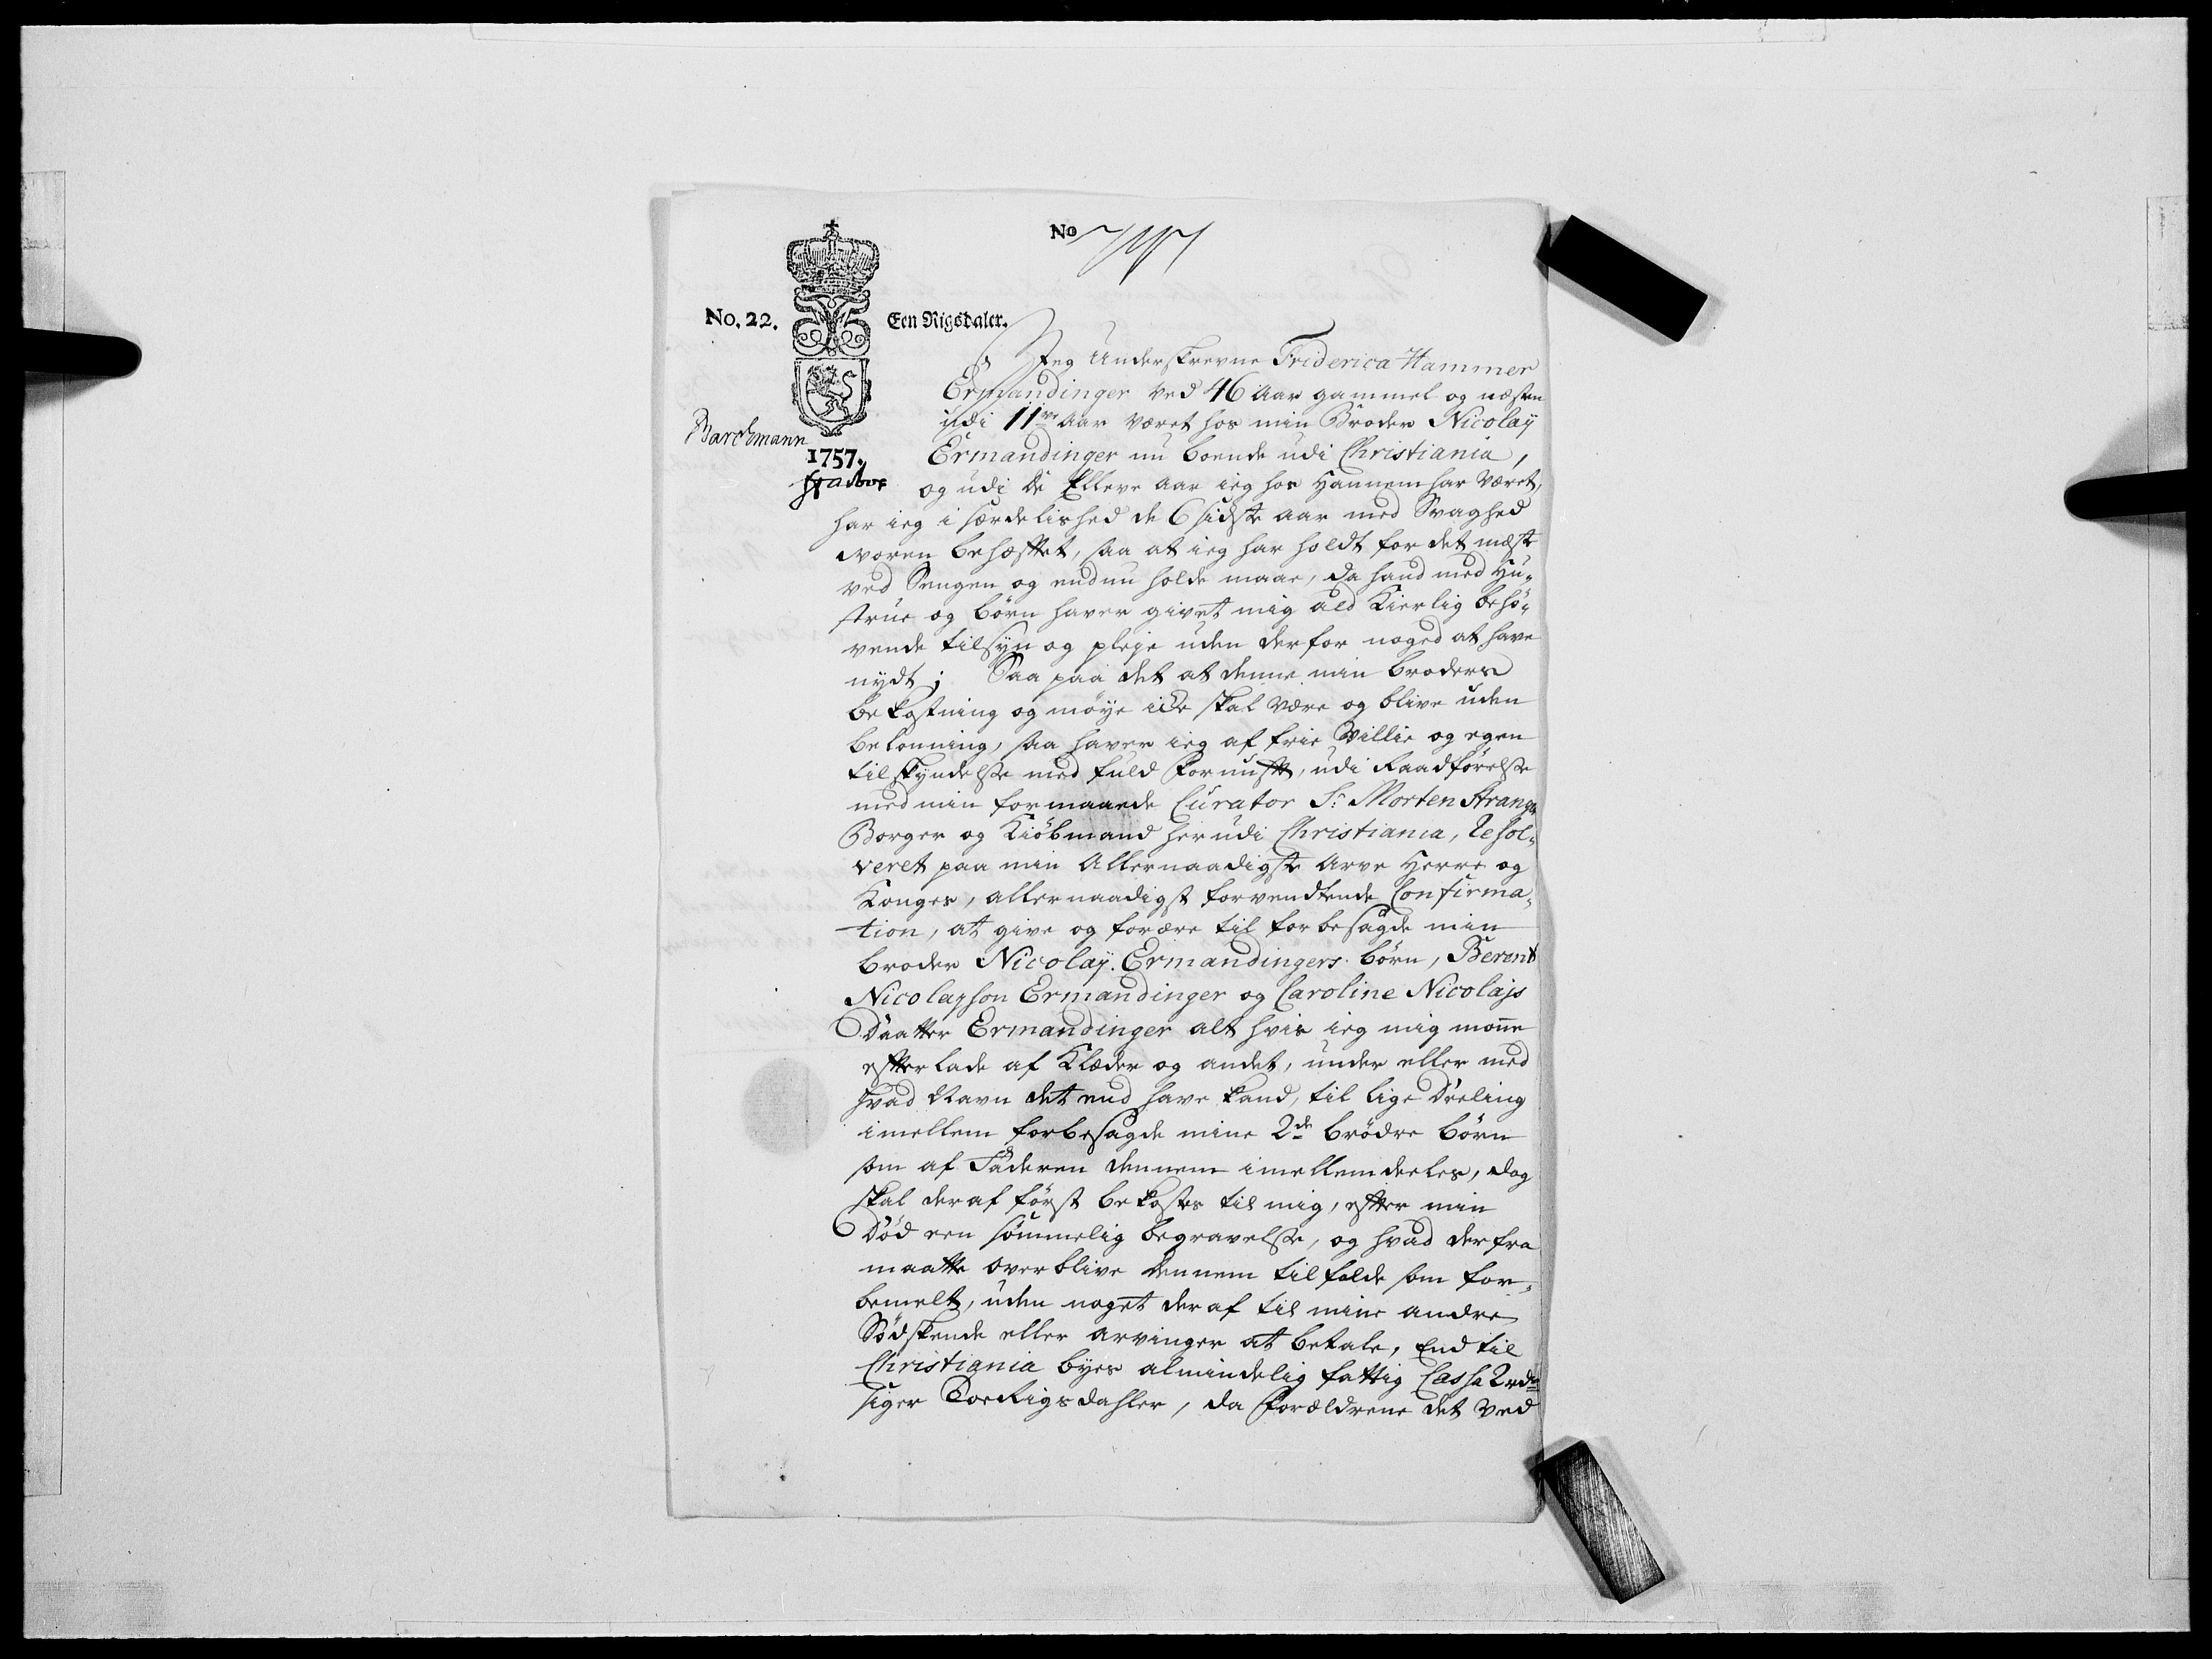 No
No. 22.
Een Rigsdaler.
Jeg Underskrevne Friderica Hammer
Ermandinger ved 46 Aar gammel og næsten
udi 11ve Aar været hos min Broder Nicolaÿ
Barchmann
Ermandinger nu boende udi Christiania,
1757.
og udi de Elleve Aar ieg hos Hannem har været,
har ieg i særdelished de 6 sidste Aar med Svaghed
voren behæfftet, saa at ieg har holdt for det mæste
ved Sengen og endnu holde maae, da hand med Hu-
strue og børn haver givet mig ald Kierlig behø-
vende tilsyn og pleje uden derfor noged at have
nydt; Saa paa det at denne min broders
bekostning og møye icke skal være og blive uden
belønning, saa haver ieg af frie Villie og egen
tilskyndelse med fuld fornufft, udi Raadførelse
med min formaaede Curator Sr Morten Strange
Borger og Kiøbmand her udi Christiania, Resol-
veret paa min Allernaadigste Arve Herre og
Konges, allernaadigst forvendtende Confirma-
tion, at give og forære til forbesagde min
broder Nicolaÿ Ermandingers børn, Berent
Nicolayson Ermandinger og Caroline Nicolajs
Daatter Ermandinger alt hvis ieg mig monne
effterlade af Klæder og andet, under eller med
hvad Navn det end have kand, til lige Deeling
imellem forbesagde mine 2de brødre børn
som af Faderen dennem imellem deeles, dog
skal deraf først bekostes til mig, effter min
Død een sømmelig begravelse, og hvad derfra
maatte overblive dennem tilfalde som for-
bemelt, uden noget deraf til mine andre
Sødskende eller arvinger at betale, End til
Christiania byes almindelig fattig Cassa 2 rdr
siger Toe Rigsdahler, da forældrene det ved